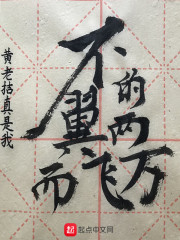 不翼而飞
的两万
黄老拮真是我
起点中文网